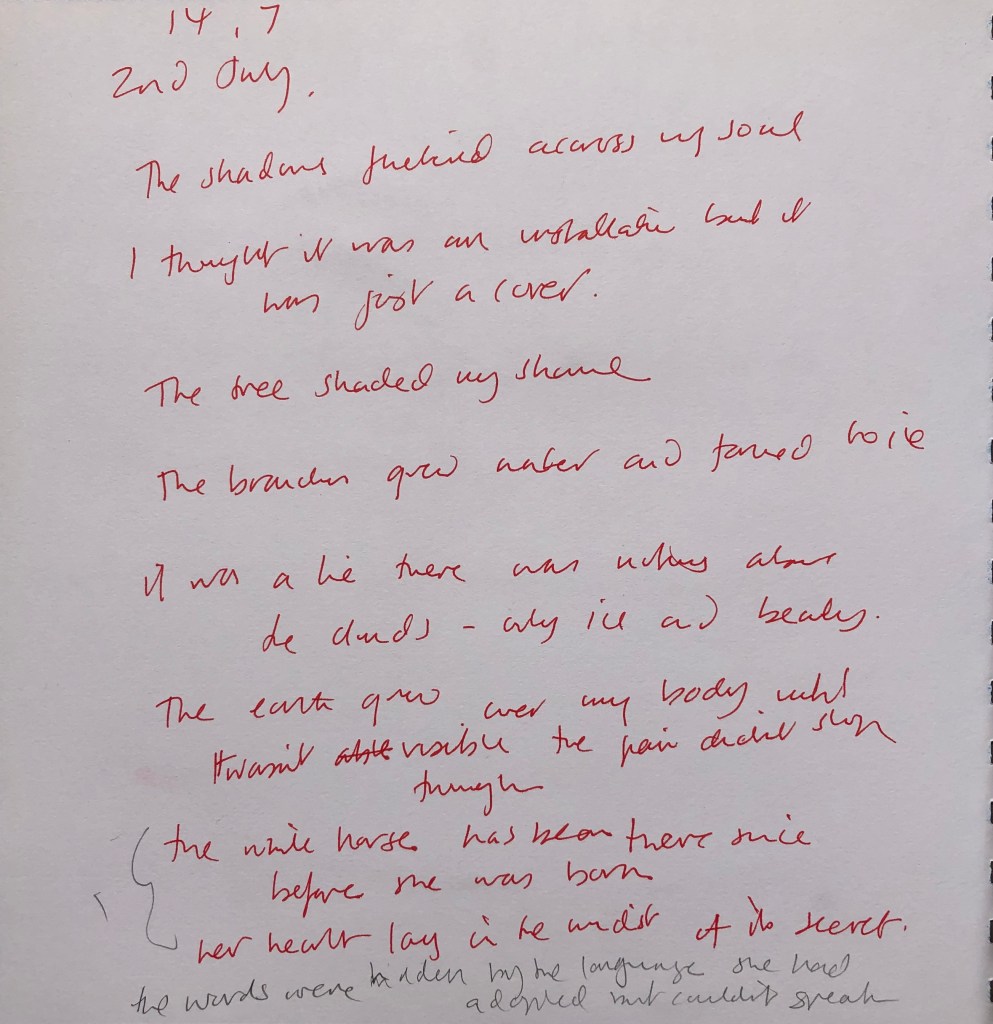 14, 7
2nd July.
The shadows flickered accross my soul
I thought it was an installation but it
was just a cover.
The tree shaded my shame
The branches grew water and formed to ice
it was a lie there was nothing above
the clouds - only ice and beauty.
The earth grew over my body until
It wasn't visible the pain didn't stop
though
the white horse has been there since
before she was born
her heart lay in the midst of its secret.
the words were hidden by the language she had
adopted but couldn't speak